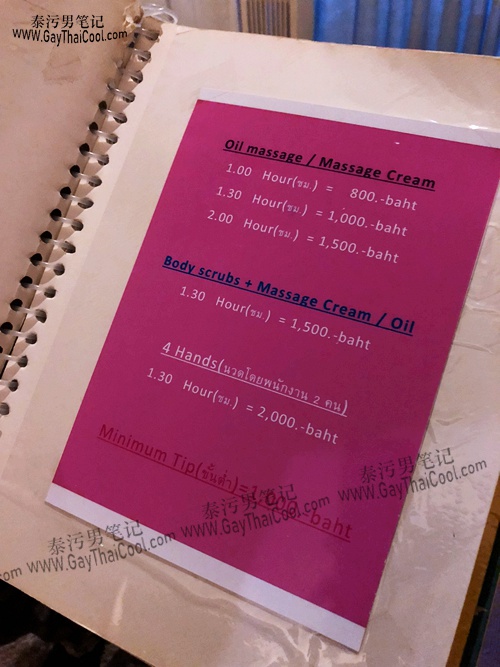 泰污男笔记
www.GayThaiCool.com
Oil massage / Massage Cream
1.00 Hour(ชม.) = 800.-baht
1.30 Hour(ชม.) = 1,000.-baht
2.00 Hour(ชม.) = 1,500.-baht
Body scrubs + Massage Cream / Oil
1.30 Hour(ชม.) = 1,500.-baht
4 Hands(นวดโดยพนักงาน 2 คน)
1.30 Hour(ชม.) = 2,000.-baht
Minimum Tip(ขั้นต่ำ)=1,000.-baht
泰污男笔记
www.GayThaiCool.com
泰污男笔记
www.GayThaiCool.com
泰污男笔记
www.GayThaiCool.com
.com